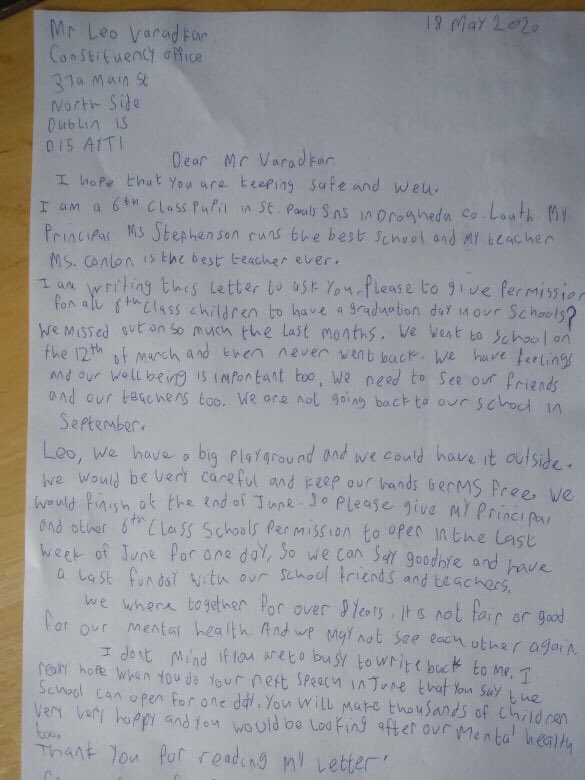 18 May 2020
Mr Leo Varadkar
Constituency office
37a Main St
North Side
Dublin 15
D15 A1T1
Dear Mr Varadkar.
I hope that you are keeping safe and well.
I am a 6th Class Pupil in St. Pauls SNS in Drogheda co. Louth. My
Principal Ms Stephenson runs the best school and my teacher
Ms. Conlon is the best teacher ever.
I am writing this letter to ask you, Please to give Permission
for all 6th Class children to have a graduation day in our Schools?
We missed out on so much the last months. We went to school on
the 12th of march and then never went back. We have feelings
and our wellbeing is important too. We need to see our friends
and our teachers too. We are not going back to our school in
September.
Leo, We have a big Playground and we could have it outside.
We would be very careful and keep our hands Germs free. We
would finish at the end of June. So Please give my Principal
and other 6th Class Schools Permission to open in the last
week of June for one day, So we can say goodbye and have
a last funday with our school friends and teachers.
We where together for over 8 years. It is not fair or good
for our mental health. And we may not see each other again
I dont mind if you are to busy to write back to me. I
really hope when you do your next speech in June that you say the
School can open for one day. You will make thousands of children
very very happy and you would be looking after our mental health
too.
Thank you for reading my letter